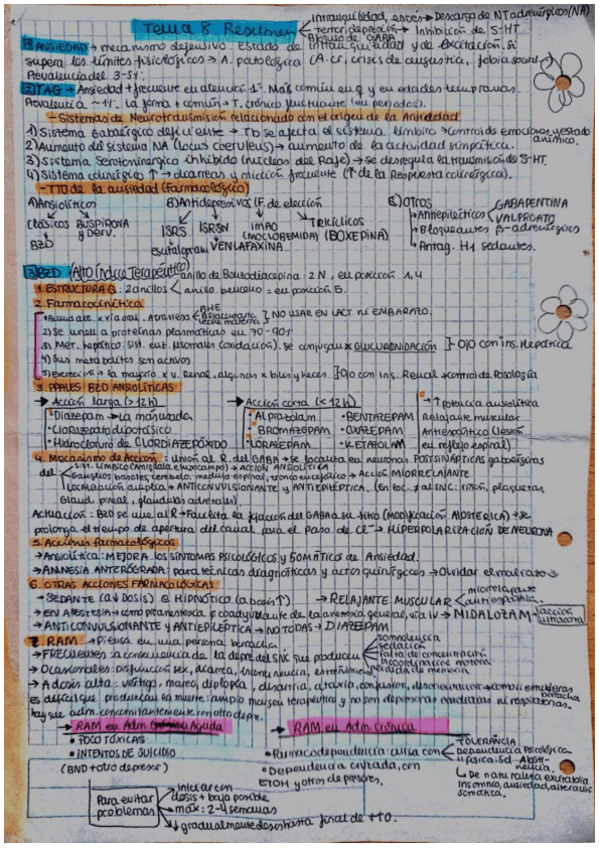 Tema 8 Resumen
intranquilidad, estrés → Descarga de NT adrenérgicos (NA)
temor, depresión → Inhibición de 5-HT
Bloqueo de GABA
1) ANSIEDAD → mecanismo defensivo. Estado de intranquilidad y de excitación. Si
supera los límites fisiológicos → A. patológica (A. cr, crisis de angustia, fobia social)
Prevalencia del 3-5%.
2) TAG → Ansiedad + frecuente en atención 1ª. Más común en ♀ y en edades tempranas.
Prevalencia ~ 4%. La forma + común → T. crónico fluctuante (en periodos).
- Sistemas de Neurotransmisión relacionado con el origen de la Ansiedad
1) Sistema Gabaérgico deficiente → Tb se afecta el sistema límbico → Control de emociones y estado anímico.
2) Aumento del sistema NA (locus coeruleus) → aumento de la actividad simpática.
3) Sistema Serotoninérgico inhibido (núcleos del Rafe) → se desregula la transmisión de 5-HT.
4) Sistema colinérgico ↑ → diarreas y micción frecuente (↑ de la Respuesta colinérgica).
- TTO de la ansiedad (Farmacológico)
A) Ansiolíticos
Clásicos
BUSPIRONA y Deriv.
BZD
B) Antidepresivos (F. de elección)
ISRS
ISRSN
IMAO (MOCLOBEMIDA)
TRICÍCLICOS (BOXEPINA)
escitalogram
VENLAFAXINA
C) OTROS
→ Antiepilécticos
GABAPENTINA
VALPROATO
→ Bloqueantes β-adrenérgicos
→ Antag. H1 sedantes.
3) BZD (Alto índice Terapéutico)
1. ESTRUCTURA Q: 2 anillos
anillo de Benzodiacepina: 2 N, en posición 1,4
anillo benceno = en posición 5.
2. Farmacocinética
1) Buena abs. x vía oral. Atraviesa
BHE
B. placentaria
leche materna
] NO USAR EN LACT. NI EMBARAZO.
2) Se unen a proteínas plasmáticas en 70-90%
3) Met. hepático: sist. enz. microsomales (oxidación). Se conjugan x GLUCURONIDACIÓN } OJO con ins. Hepática
4) Sus metabolitos son activos
5) Excreción → la mayoría x v. Renal, algunos x bilis y heces. } OJO con ins. Renal → control de Posología
3. PPALES BZD ANSIOLÍTICAS
→ Acción larga (> 12h)
• Diazepam → la más usada
• Clorazepato dipotásico
• Hidrocloruro de CLORDIAZEPÓXIDO
→ Acción corta (< 12h)
• ALPRAZOLAM
• BROMAZEPAM
• LORAZEPAM
• BENTAZEPAM
• OXAZEPAM
• KETAZOLAM
→ ↑ potencia ansiolítica
Relajante muscular
Antiespástico (lesión
en reflejo espinal)
4. Mecanismo de Acción = unión al R. del GABA → se localiza en neuronas POSTSINÁPTICAS gabaérgicas
del
SIST. LÍMBICO (amígdala e hipocampo) → ACCIÓN ANSIOLÍTICA
Ganglios basales, cerebelo, médula espinal, tronco encefálico → Acción MIORRELAJANTE
Localización amplia → ANTICONVULSIONANTE Y ANTIEPILÉPTICA. (En loc. ≠ al SNC: riñón, plaquetas,
Gland. pineal, glándulas adrenales)
Actuación: BZD se une al R → Facilita la fijación del GABA a su sitio (modificación ALOSTÉRICA) → se
prolonga el tiempo de apertura del canal para el paso de Cl⁻ → HIPERPOLARIZACIÓN DE NEURONA
5. Acciones farmacológicas
→ Ansiolítica: MEJORA LOS SÍNTOMAS PSICOLÓGICOS Y SOMÁTICOS de Ansiedad.
→ AMNESIA ANTERÓGRADA: para técnicas diagnósticas y actos quirúrgicos → Olvidar el mal rato
6. OTRAS ACCIONES FARMACOLÓGICAS
→ SEDANTE (a ↓ DOSIS) e HIPNÓTICO (a dosis ↑)
→ RELAJANTE MUSCULAR
miorrelajante
antiespástica
→ EN ANESTESIA → como preanestesia o coadyuvante de la anestesia general, vía IV → MIDAZOLAM → acción ultracorta
→ ANTICONVULSIONANTE Y ANTIEPILÉPTICA → NO TODAS → DIAZEPAM
7. RAM → Piensa en una persona borracha
→ FRECUENTES: a consecuencia de la depre. del SNC que producen
somnolencia
sedación
falta de concentración
incoordinación motora
pérdida de memoria
→ Ocasionales: disfunción sex, diarrea, incontinencia, estreñimiento
→ A dosis alta: vértigo, mareo, diplopía, disartria, ataxia, confusión,
borracha
es difícil que produzcan la muerte: amplio margen terapéutico y no son depresoras cardiacas ni respiratorias.
hay que adm. concomitantemente con otro depre.
→ RAM en Adm Aguda
• POCO TÓXICAS
• INTENTOS DE SUICIDIO
(BND + otro depresor)
→ RAM en Adm. Crónica
• Farmacodependencia: cursa con
TOLERANCIA
Dependencia Psicológica
" física: Sd. Abstinencia.
↳ De naturaleza excitatoria
Insomnio, ansiedad, alteración
somática.
• Dependencia cruzada, con
ETOH y otros depresores.
Para evitar problemas
iniciar con
dosis + baja posible
máx: 2-4 semanas
↓ gradualmente dosis hasta final de tto.